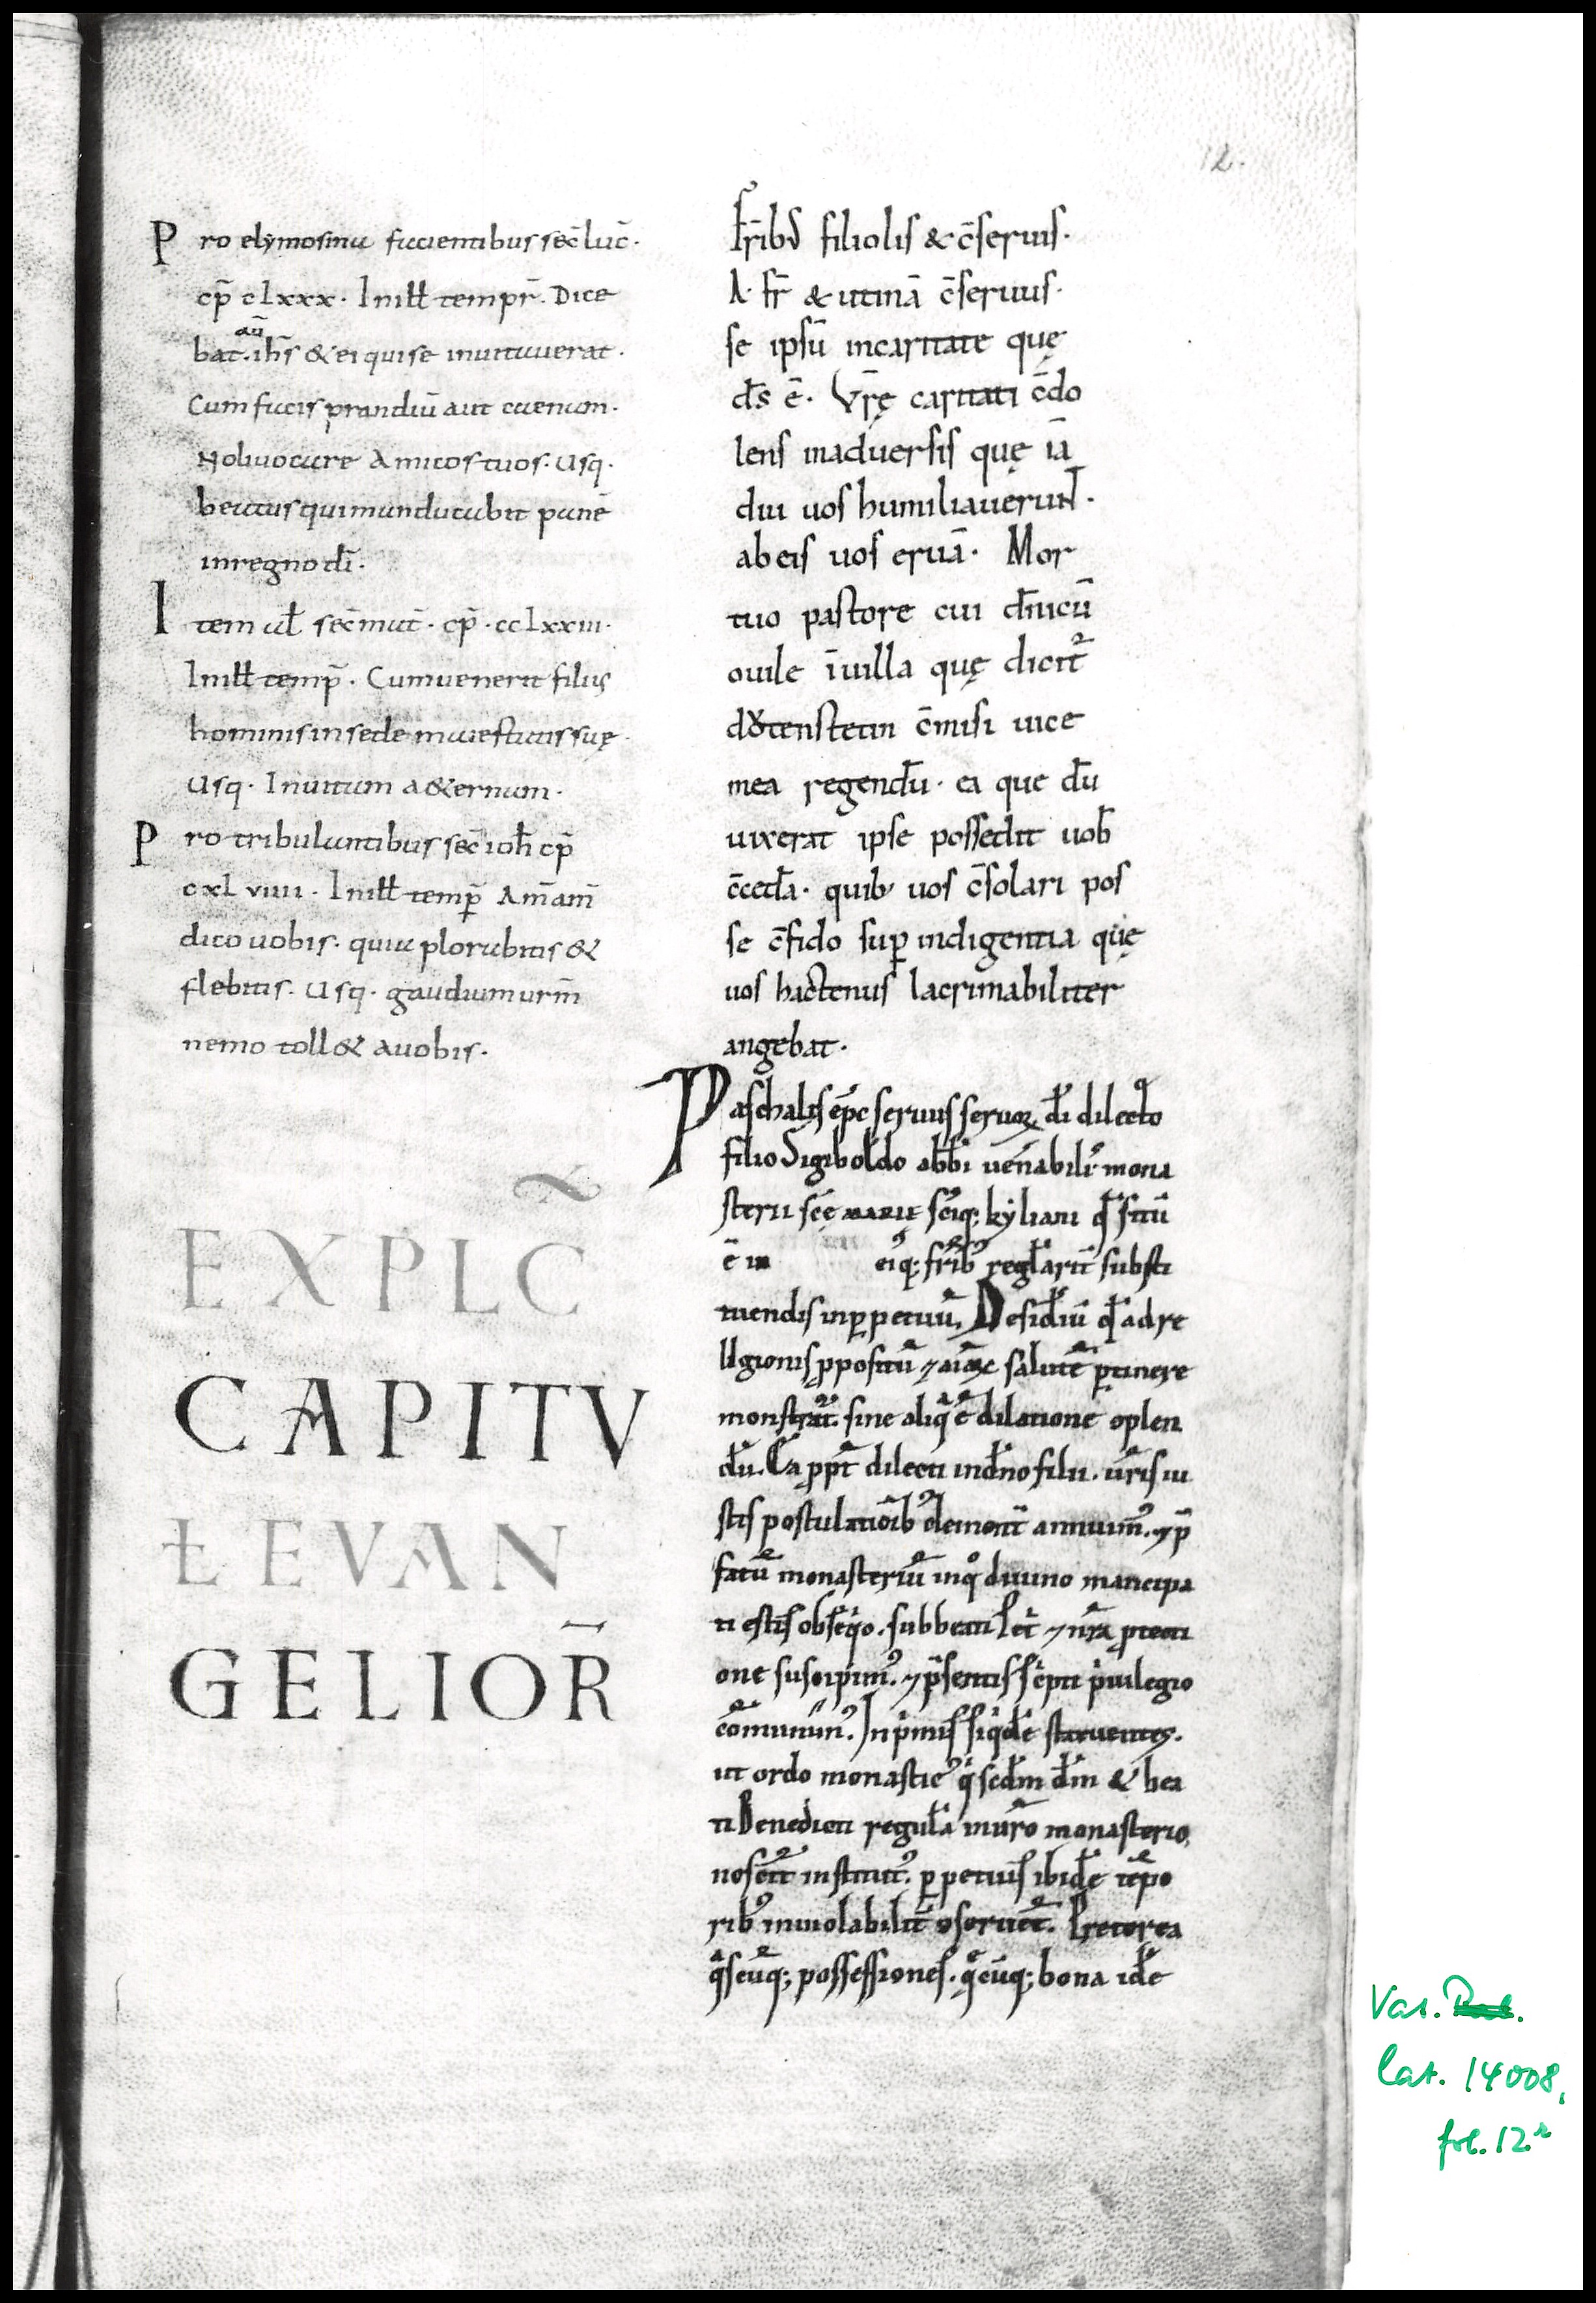 12.
Pro elymosina facientibus sec̄ luc̄·
cp̄ clxxx· Inill tempr̄. Dice
bat· aū ih̄s & ei qui se inuitauerat·
Cum facis prandiū aut caenam·
Noli uocare Amicos tuos· Usq·
beatus qui manducabit panē
in regno dī·
Item al̄ sec̄ mat̄· cp̄· cclxxiii·
Inill temp̄· Cum uenerit filius
hominis in sede maiestatis suę·
Usq· In uitam a&ernam·
Pro tribulantibus sec̄ ioh̄ cp̄
cxlviiii· Inill temp̄ Am̄ am̄
dico uobis· quia plorabitis &
flebitis· Usq· gaudium urm̄
nemo toll& a uobis·
EXPLC̄
CAPITV
Ł EVAN
GELIOR̄
Fr̄ibus filiolis & c̄seruis·
A· fr̄ & utinā c̄seruus·
se ipsū in caritate quę
d̄s ē· Vr̄ę caritati c̄do
lens in aduersis quę iā
diu uos humiliauerunt·
ab eis uos eruā· Mor
tuo pastore cui dn̄icū
ouile ī uilla quę dicit̄
d&tenstetin c̄misi uice
mea regendū· ea que dū
uixerat ipse possedit uob̄
c̄cedā· quib; uos c̄solari pos
se c̄fido sup̄ indigentia quę
uos hactenus lacrimabiliter
angebat·
Paschalis ep̄c seruus seruoꝝ dī dilecto
filio Sigiboldo abb̄i uen̄abili· mona
sterii sc̄ę marię sc̄iq; kyliani qd̄ sitū
ē in eiq; fr̄ib; regl̄arit̄ substi
tuendis in ꝑpetuū. Desid̄iū qd̄ ad re
ligionis ꝓpositū ⁊ aīaꝝ salutē ꝑtinere
monstrat̄. sine aliq̄ ē dilatione ꝯplen
dū. Ea ꝓpt̄ dilecti in dn̄o filii. ur̄is iu
stis postulatiōib; clement̄ annuim;. ⁊ p̄
fatū monasteriū in qo diuino mancipa
ti estis obseq̄o. sub beati Pet̄ ⁊ nr̄a ꝓtecti
one suscipim;. ⁊ p̄sentis sc̄pti p̄uilegio
cōmunim;. In p̄mis siq̄dē statuentes.
ut ordo monastic; q̄ sc̄dm dm̄ & bea
ti Benedicti regulā in ur̄o monasterio
noscit̄ institut;. ꝑpetuis ibidē tēpo
rib; inuiolabilit̄ obseruet̄. Preterea
q̄scūq; possessiones. q̄cūq; bona idē
Vat.
lat. 14008,
fol. 12r